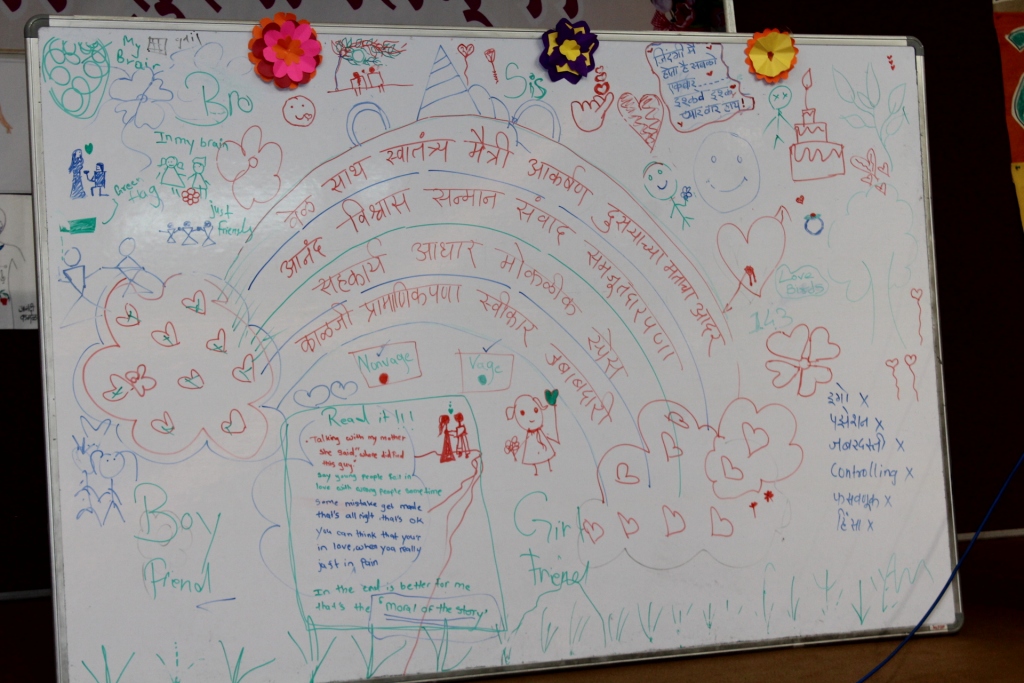 My
Brain
Bro
Sis
जिंदगी में
होता है सबको
एकबार
In my brain
Green
flag
just
friends
वेळ साथ स्वातंत्र्य मैत्री आकर्षण दुसऱ्याच्या मताचा आदर
आनंद विश्वास सन्मान संवाद समजूतदारपणा
सहकार्य आधार मोकळीक स्पेस
काळजी प्रामाणिकपणा स्वीकार जबाबदारी
Love
Birds
143
Nonvage
Vage
Read it !!!
"Talking with my mother
she said, "where did find
this guy"
say young people fall in
love with wrong people sometime
Some mistake get made
that's allright that's ok
You can think that your
in love, when you really
just in pain
In the end is better for me
that's the "moral of the story"
इगो x
पझेशन x
जबरदस्ती x
Controlling x
फसवणूक x
हिंसा x
Boy
friend
Girl
Friend